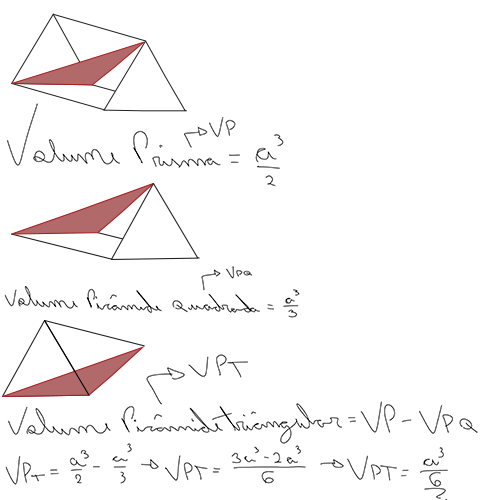 Volume Prisma = a³/2 → VP
Volume Pirâmide Quadrada = a³/3 → VPQ
→ VPT
Volume Pirâmide triângular = VP - VPQ
VPT = a³/2 - a³/3 → VPT = 3a³-2a³/6 → VPT = a³/6